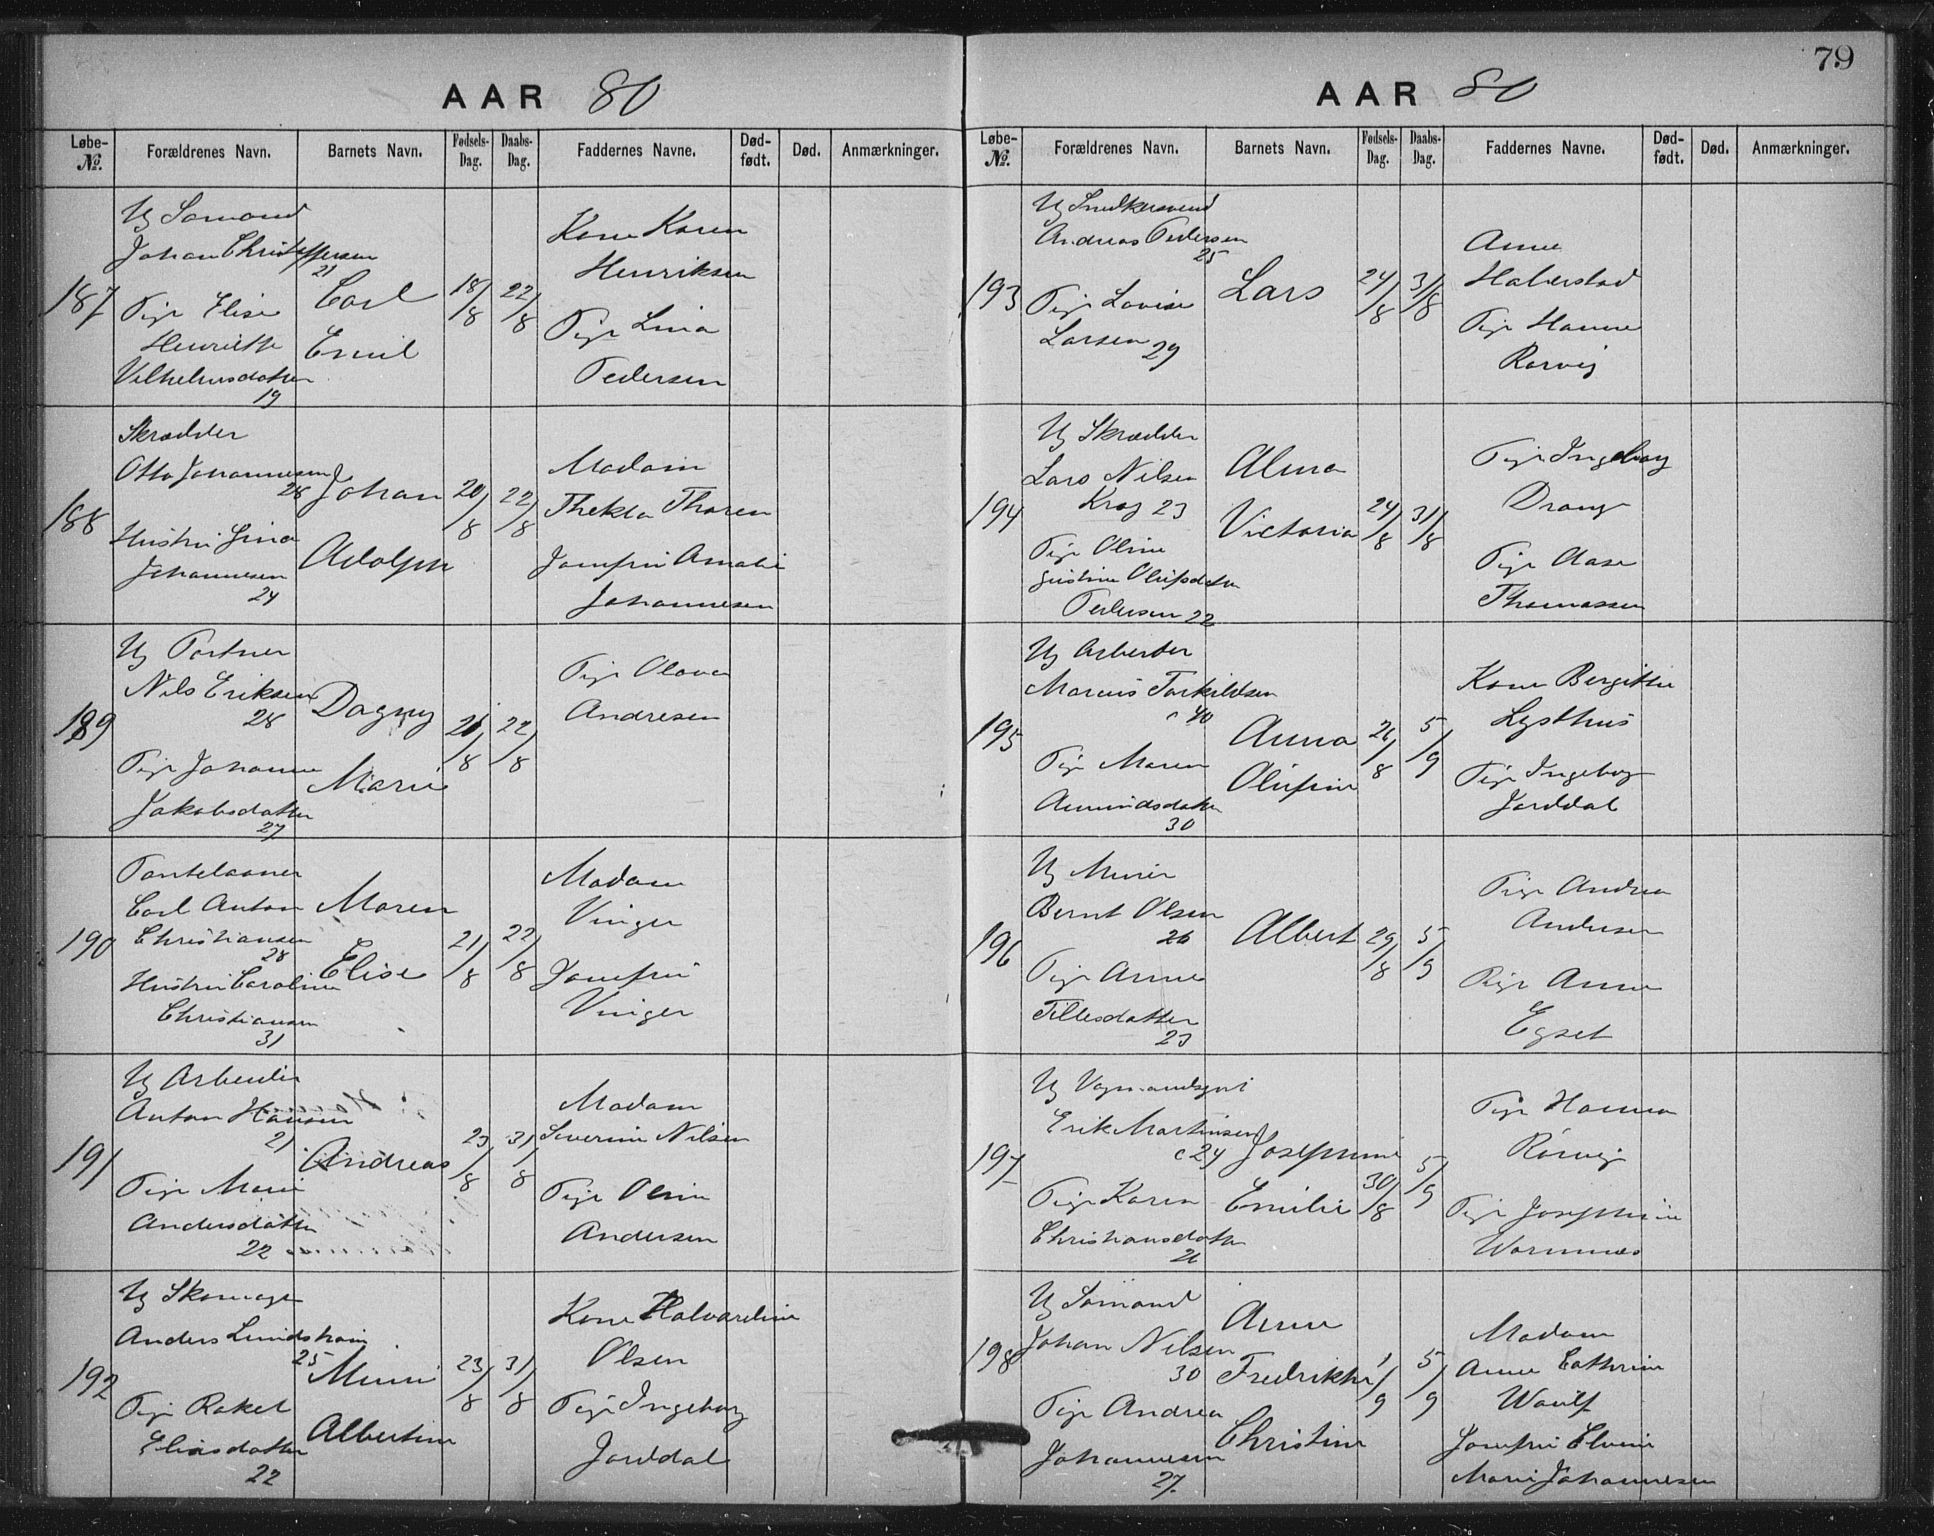 AAR 80
Løbe-№.
Forældrenes Navn.
Barnets Navn.
Fødsels-Dag.
Daabs-Dag.
Faddernes Navne.
Død-født.
Død.
Anmærkninger.
187
Ug Sømand
Johan Christoffersen
21
Pige Elise
Henriette
Vilhelmsdatter
19
Carl
Emil
18/8
22/8
Kone Karen
Henriksen
Pige Lina
Pedersen
188
Skrædder
Otto Johannesen
28
Hustru Lina
Johannesen
24
Johan
Adolph
20/8
22/8
Madam
Thekla Thoren
Jomfru Amalie
Johannesen
189
Ug Portner
Nils Eriksen
28
Pige Johanne
Jakobsdatter
27
Dagny
Marie
21/8
22/8
Pige Olava
Andresen
190
Pantelaaner
Carl Anton
Christiansen
28
Hustru Caroline
Christiansen
31
Maren
Elise
21/8
22/8
Madam
Vinger
Jomfru
Vinger
191
Ug Arbeider
Anton Hansen
21
Pige Marie
Andersdatter
22
Andreas
23/8
31/8
Madam
Severine Nilsen
Pige Oline
Andersen
192
Ug Skomager
Anders Lundsham
25
Pige Rakel
Eliasdatter
22
Mimi
Albertine
23/8
31/8
Kone Halvardine
Olsen
Pige Ingeborg
Jorddal
79
AAR 80
Løbe-№.
Forældrenes Navn.
Barnets Navn.
Fødsels-Dag.
Daabs-Dag.
Faddernes Navne.
Død-født.
Død.
Anmærkninger.
193
Ug Snedkersvend
Andreas Pedersen
25
Pige Lovise
Larsen 29
Lars
24/8
31/8
Anne
Halvorstad
Pige Hanne
Rørvig
194
Ug Skrædder
Lars Nilsen
Krog 23
Pige Oline
Gustine Olufsdatter
Pedersen 22
Alma
Victoria
24/8
31/8
Pige Ingeborg
Drange
Pige Aase
Thomassen
195
Ug Arbeider
Marius Torkildsen
c 40
Pige Maren
Amundsdatter
30
Anna
Olufine
26/8
5/9
Kone Bergitte
Lysthus
Pige Ingeborg
Jorddal
196
Ug Murer
Bernt Olsen
26
Pige Anne
Tillesdatter
23
Albert
29/8
5/9
Pige Andrea
Andersen
Pige Anne
Egset
197
Ug Vognmandsgut
Erik Martinsen
c 24
Pige Karen
Christiansdatter
26
Josephine
Emilie
30/8
5/9
Pige Hanna
Rørvig
Pige Josephine
Wormnes
198
Ug Sømand
Johan Nilsen
30
Pige Andrea
Johannesen
27.
Anne
Fredrikke
Christine
1/9
5/9
Madam
Anne Cathrine
Woulf
Jomfru Elvine
Marie Johannesen